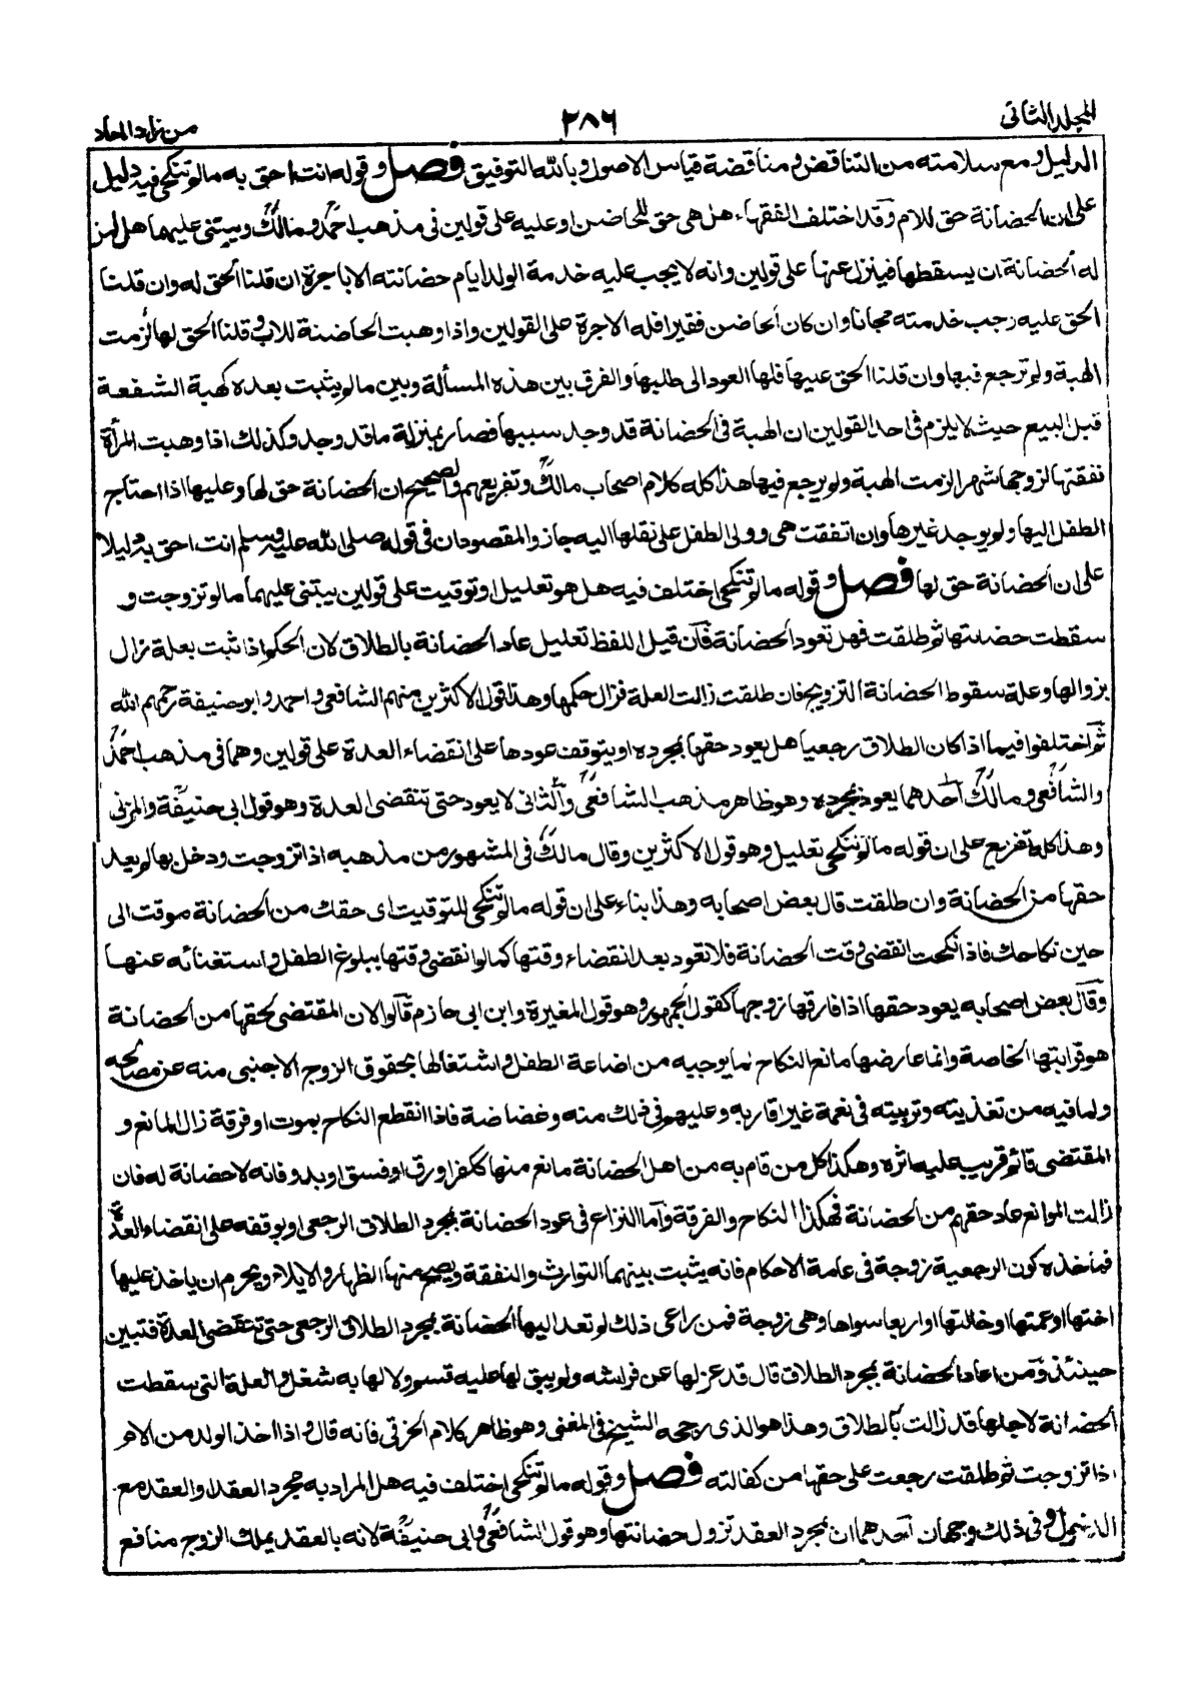 المجلد الثاني
٢٨٦
من زاد المعاد
الدليل ومع سلامته من التناقض ومناقضة قياس الاصول وبالله التوفيق فصل وقوله انت احق به مالم تنكحي فيه دليل
على ان الحضانة حق للام وقد اختلف الفقهاء هل هي حق للحاضن او عليه على قولين في مذهب احمد ومالك ويبتني عليهما هل لمن
له الحضانة ان يسقطها فينزل عنها على قولين وانه لا يجب عليه خدمة الولد ايام حضانته الا باجرة ان قلنا الحق له وان قلنا
الحق عليه وجب خدمته مجانا وان كان الحاضن فقيرا فله الاجرة على القولين واذا وهبت الحاضنة للاب وقلنا الحق لها لزمت
الهبة ولم ترجع فيها وان قلنا الحق عليها فلها العود الى طلبها والفرق بين هذه المسألة وبين مالم يثبت بعد كهبة الشفعة
قبل البيع حيث لا يلزم في احد القولين ان الهبة في الحضانة قد وجد سببها فصار بمنزلة ما قد وجد وكذلك اذا وهبت المرأة
نفقتها لزوجها شهرا لزمت الهبة ولم يرجع فيها هذا كله كلام اصحاب مالك وتفريعهم والصحيح ان الحضانة حق لها وعليها اذا احتاج
الطفل اليها ولم يوجد غيرها وان اتفقت هي وولي الطفل على نقلها اليه جاز والمقصود ان في قوله صلى الله عليه وسلم انت احق به دليلا
على ان الحضانة حق لها فصل وقوله مالم تنكحي اختلف فيه هل هو تعليل او توقيت على قولين يبتنى عليهما مالو تزوجت و
سقطت حضانتها ثم طلقت فهل تعود الحضانة فان قيل اللفظ تعليل عاد الحضانة بالطلاق لان الحكم اذا ثبت بعلة زال
بزوالها وعلة سقوط الحضانة التزويج فان طلقت زالت العلة فزال حكمها وهذا قول الاكثرين منهم الشافعي واحمد وابو حنيفة رحمهم الله
ثم اختلفوا فيما اذا كان الطلاق رجعيا هل يعود حقها بمجرده او يتوقف عودها على انقضاء العدة على قولين وهما في مذهب احمد
والشافعي ومالك احدهما يعود بمجرده وهو ظاهر مذهب الشافعي والثاني لا يعود حتى تنقضي العدة وهو قول ابي حنيفة والمزني
وهذا كله تفريع على ان قوله مالم تنكحي تعليل وهو قول الاكثرين وقال مالك في المشهور من مذهبه اذا تزوجت ودخل بها لم يعد
حقها من الحضانة وان طلقت قال بعض اصحابه وهذا بناء على ان قوله مالم تنكحي للتوقيت اي حقك من الحضانة موقت الى
حين نكاحك فاذا نكحت انقضى وقت الحضانة فلا تعود بعد انقضاء وقتها كما لو انقضى وقتها ببلوغ الطفل واستغنائه عنها
وقال بعض اصحابه يعود حقها اذا فارقها زوجها كقول الجمهور وهو قول المغيرة وابن ابي حازم قالوا لان المقتضي لحقها من الحضانة
هو قرابتها الخاصة وانما عارضها مانع النكاح لما يوجبه من اضاعة الطفل واشتغالها بحقوق الزوج الاجنبي منه عن مصالحه
ولما فيه من تغذيته وتربيته في نعمة غير اقاربه وعليهم في ذلك منه وغضاضة فاذا انقطع النكاح بموت او فرقة زال المانع و
المقتضي قائم فترتب عليه اثره وهكذا كل من قام به من اهل الحضانة مانع منها ككفر او رق او فسق او بدو فانه لا حضانة له فان
زالت الموانع عاد حقهم من الحضانة فهكذا النكاح والفرقة واما النزاع في عود الحضانة بمجرد الطلاق الرجعي او بوقفه على انقضاء العدة
فمأخذه كون الرجعية زوجة في عامة الاحكام فانه يثبت بينهما التوارث والنفقة ويصح منها الظهار والايلاء ويحرم ان ياخذ عليها
اختها او عمتها او خالتها او اربعا سواها وهي زوجة فمن راعى ذلك لم تعد اليها الحضانة بمجرد الطلاق الرجعي حتى تنقضي العدة فتبين
حينئذ ومن اعاد الحضانة بمجرد الطلاق قال قد عزلها عن فراشه ولم يبق لها عليه قسم ولا لها به شغل والعلة التي سقطت
الحضانة لاجلها قد زالت بالطلاق وهذا هو الذي رجحه الشيخ في المغني وهو ظاهر كلام الخرقي فانه قال واذا اخذ الولد من الام
اذا تزوجت ثم طلقت رجعت على حقها من كفالته فصل وقوله مالم تنكحي اختلف فيه هل المراد به مجرد العقد او العقد مع
الدخول وفي ذلك وجهان احدهما ان بمجرد العقد تزول حضانتها وهو قول الشافعي وابي حنيفة لانه بالعقد يملك الزوج منافع